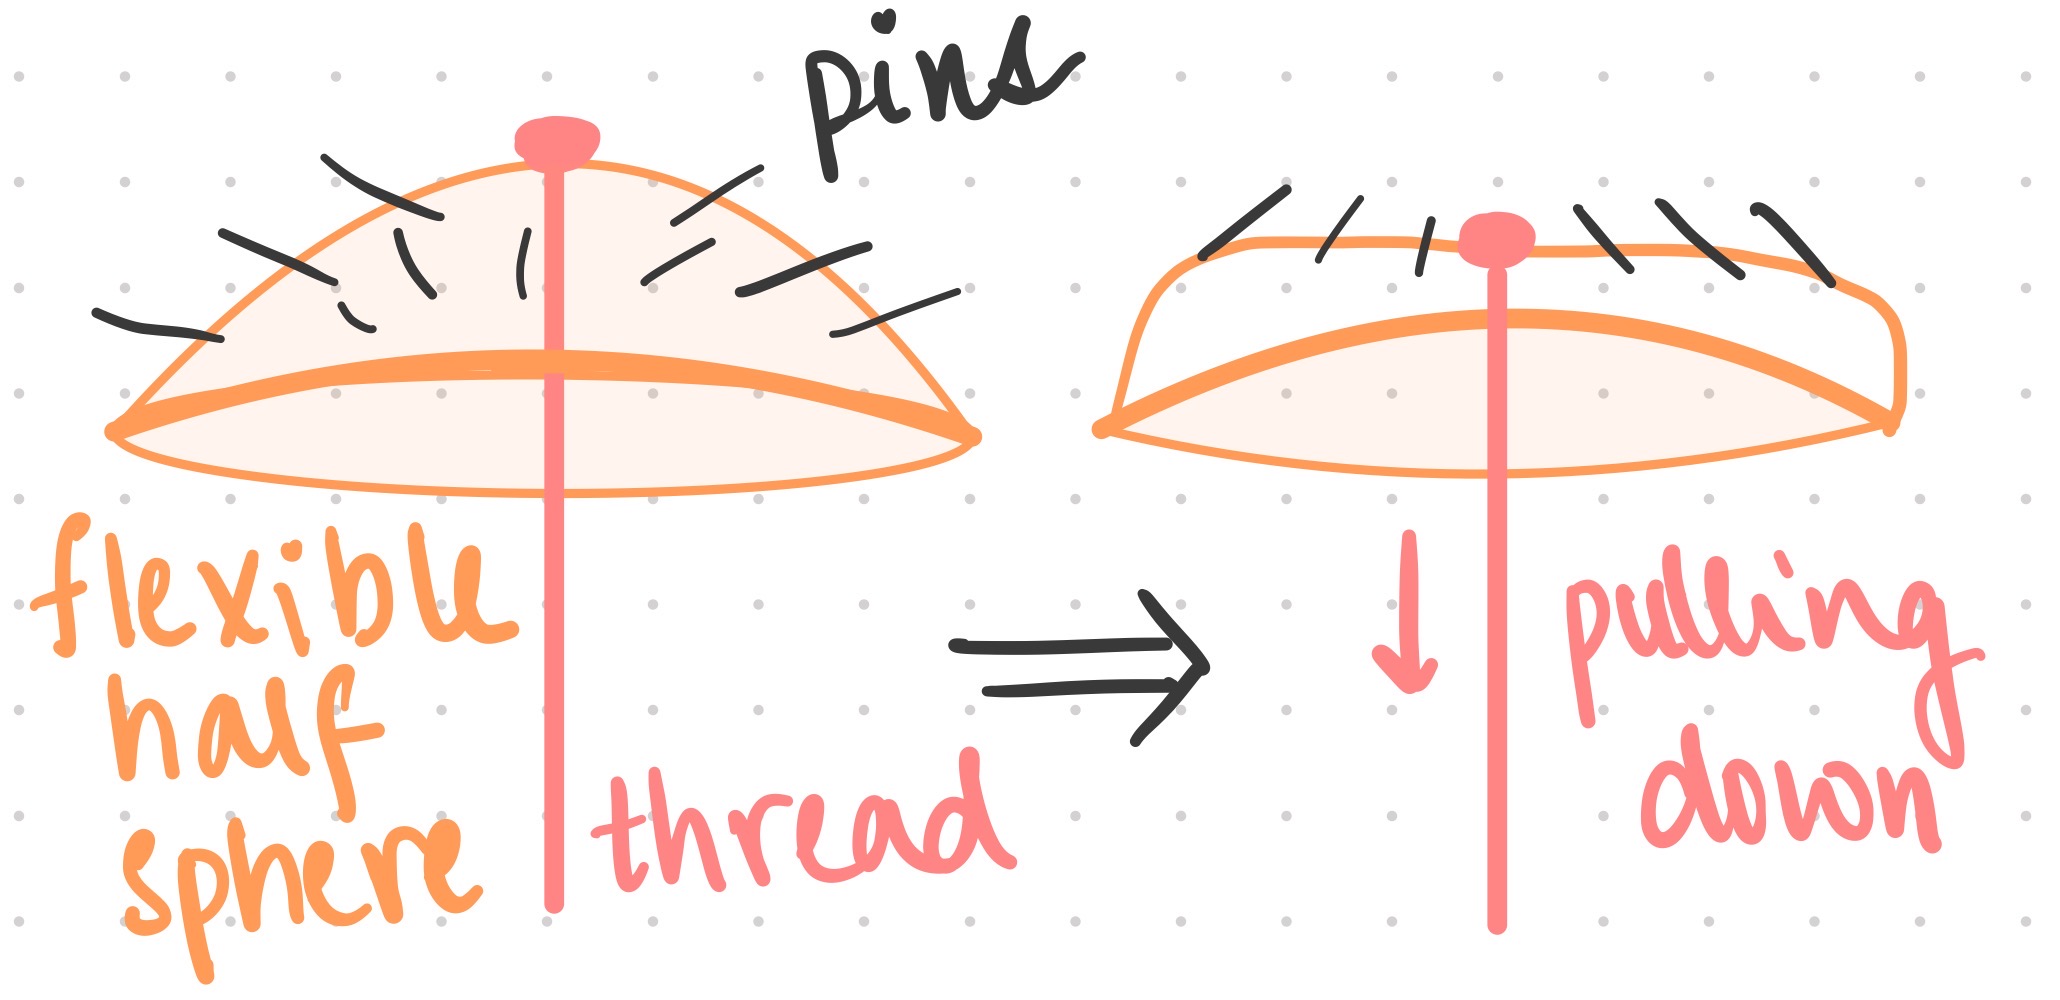 pins
flexible
half
sphere
thread
pulling
down